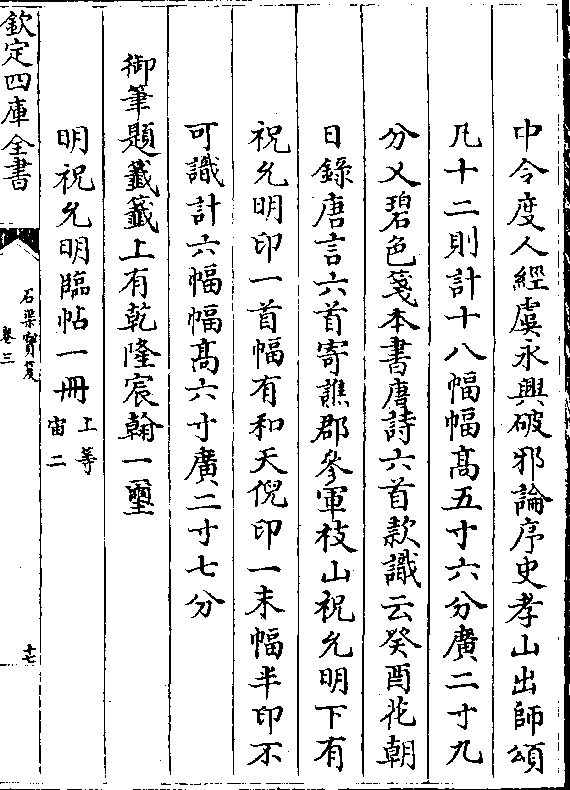 中令度人經虞永興破邪論序史孝山出師頌
凡十二則計十八幅幅髙五寸六分廣二寸九
分又碧色箋本書唐詩六首款識云癸酉花朝
日錄唐言六首寄譙郡參軍枝山祝允明下有
祝允明印一首幅有和天倪印一末幅半印不
可識計六幅幅髙六寸廣二寸七分
御筆題籤籤上有乾隆宸翰一璽
明祝允明臨帖一冊 上等
宙二
欽定四庫全書
石渠寶笈
卷三
十七